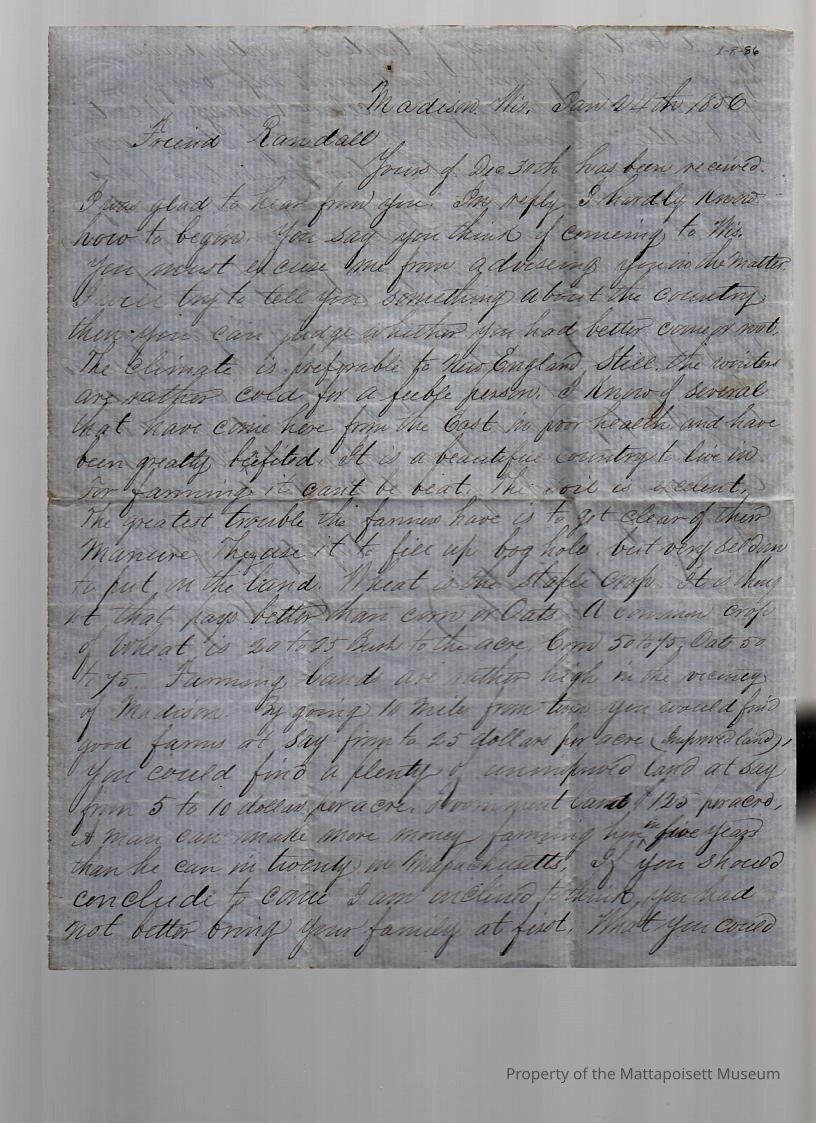 1-8-86
Madison Wis. Jan 24th 1856
Friend Randall
Yours of Dec 30th has been received.
I was glad to hear from you. In reply I hardly know
how to begin. You say you think of comeing to Wis.
You must excuse me from adviseing you on the Matter.
I will try to tell you something about the country,
then you can judge whether you had better come or not.
The climate is preferable to New England, Still the winters
are rather cold for a feeble person. I know of several
that have come here from the East in poor health and have
been greatly befited. It is a beautiful country to live in
For farming it cant be beat. The soil is
The greatest trouble the farmers have is to get clear of their
Manure. They use it to fill up bog hole, but very seldom
to put on the land. Wheat is the staple crop. It is
that pays better than corn or Oats. A common crop
of Wheat is 20 to 25 Bush to the acre. Corn 50 to 75, Oats 50
to 75. Farming land are rather high in the vicinity
of Madison. By going 10 miles from town you would find
good farms at say from to 25 dollars per acre (Improved land),
You could find a plenty of unimproved land at say
from 5 to 10 dollars per acre. land $1.25 per acre,
A man can make more money farming here in five years
than he can in twenty in Massachusetts. If you should
conclude to come I am inclined to think you had
not better bring your family at first. What you could
Property of the Mattapoisett Museum